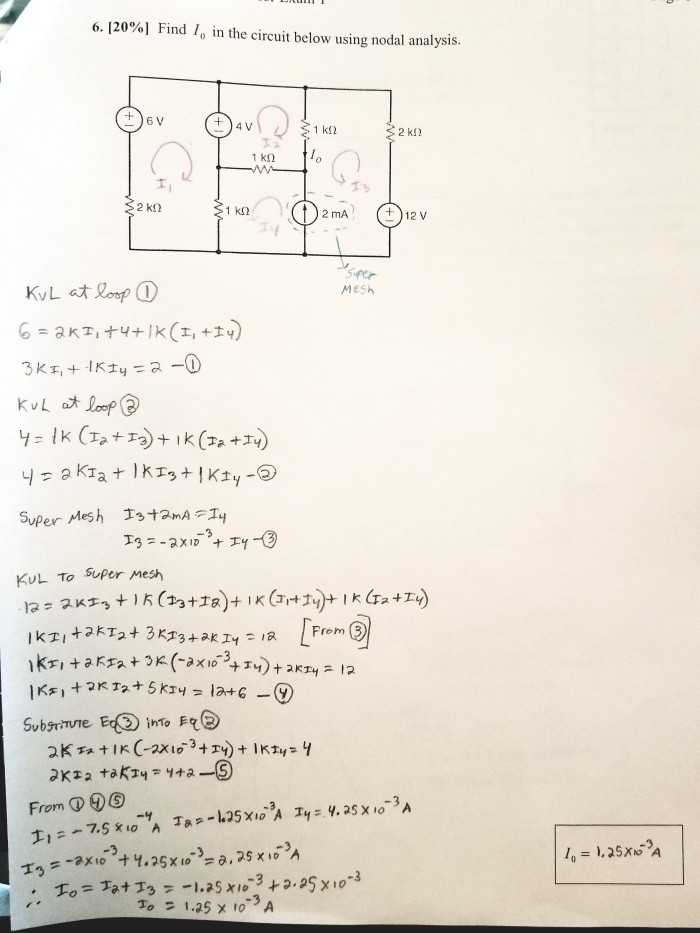 6. [20%] Find I₀ in the circuit below using nodal analysis.
6 V
4 V
1 kΩ
2 kΩ
I₂
1 kΩ
I₀
I₁
I₃
2 kΩ
1 kΩ
I₄
2 mA
12 V
Super
Mesh
KVL at loop ①
6 = 2KI₁ + 4 + 1K(I₁ + I₄)
3KI₁ + 1KI₄ = 2 – ①
KVL at loop ②
4 = 1K (I₂ + I₃) + 1K (I₂ + I₄)
4 = 2KI₂ + 1KI₃ + 1KI₄ – ②
Super Mesh I₃ + 2mA = I₄
I₃ = -2x10⁻³ + I₄ – ③
KVL To Super Mesh
12 = 2KI₃ + 1K (I₃ + I₂) + 1K (I₁ + I₄) + 1K (I₂ + I₄)
1KI₁ + 2KI₂ + 3KI₃ + 2KI₄ = 12 [From ③]
1KI₁ + 2KI₂ + 3K (-2x10⁻³ + I₄) + 2KI₄ = 12
1KI₁ + 2KI₂ + 5KI₄ = 12+6 – ④
Substitute Eq ③ into Eq ②
2KI₂ + 1K (-2x10⁻³ + I₄) + 1KI₄ = 4
2KI₂ + 2KI₄ = 4+2 – ⑤
From ① ④ ⑤
I₁ = -7.5 x 10⁻⁴ A I₂ = -1.25x10⁻³ A I₄ = 4.25 x 10⁻³ A
I₃ = -2x10⁻³ + 4.25x10⁻³ = 2.25 x 10⁻³ A
∴ I₀ = I₂ + I₃ = -1.25 x 10⁻³ + 2.25 x 10⁻³
I₀ = 1.25 x 10⁻³ A
I₀ = 1.25x10⁻³ A